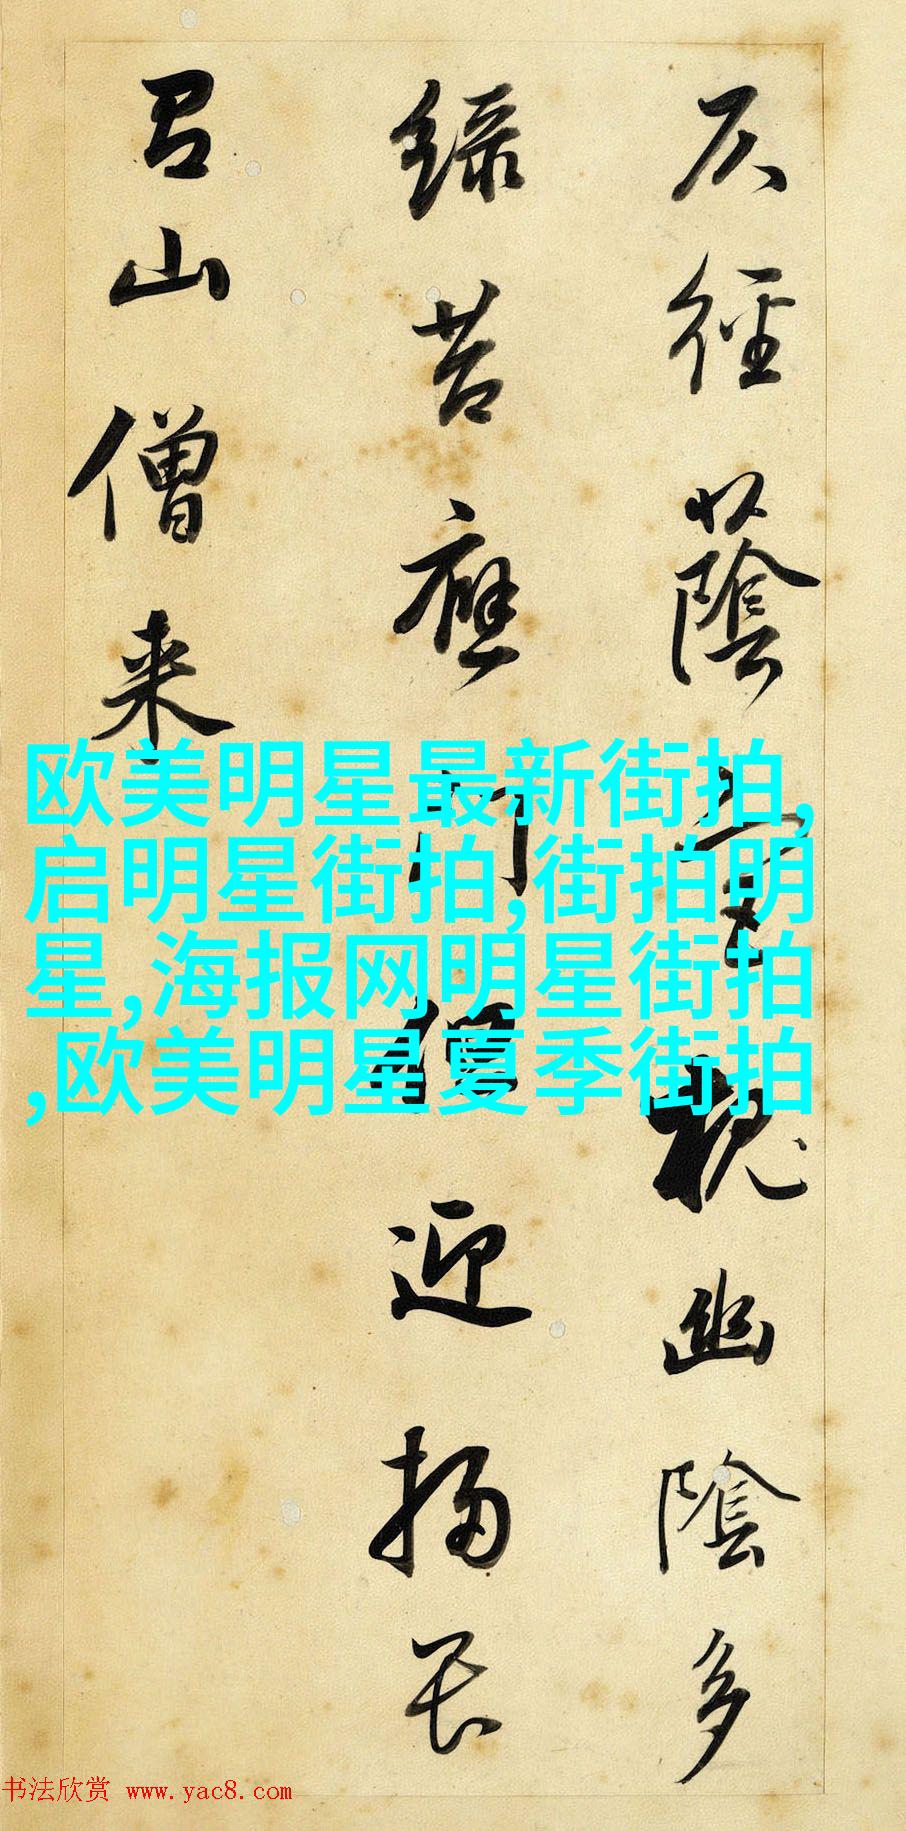 仄徑蔭宮槐幽陰多
綠苔應門但迎掃畏
有山僧来
欧美明星最新街拍,
启明星街拍,街拍明
星,海报网明星街拍
,欧美明星夏季街拍
书法欣赏 www.yac8.com